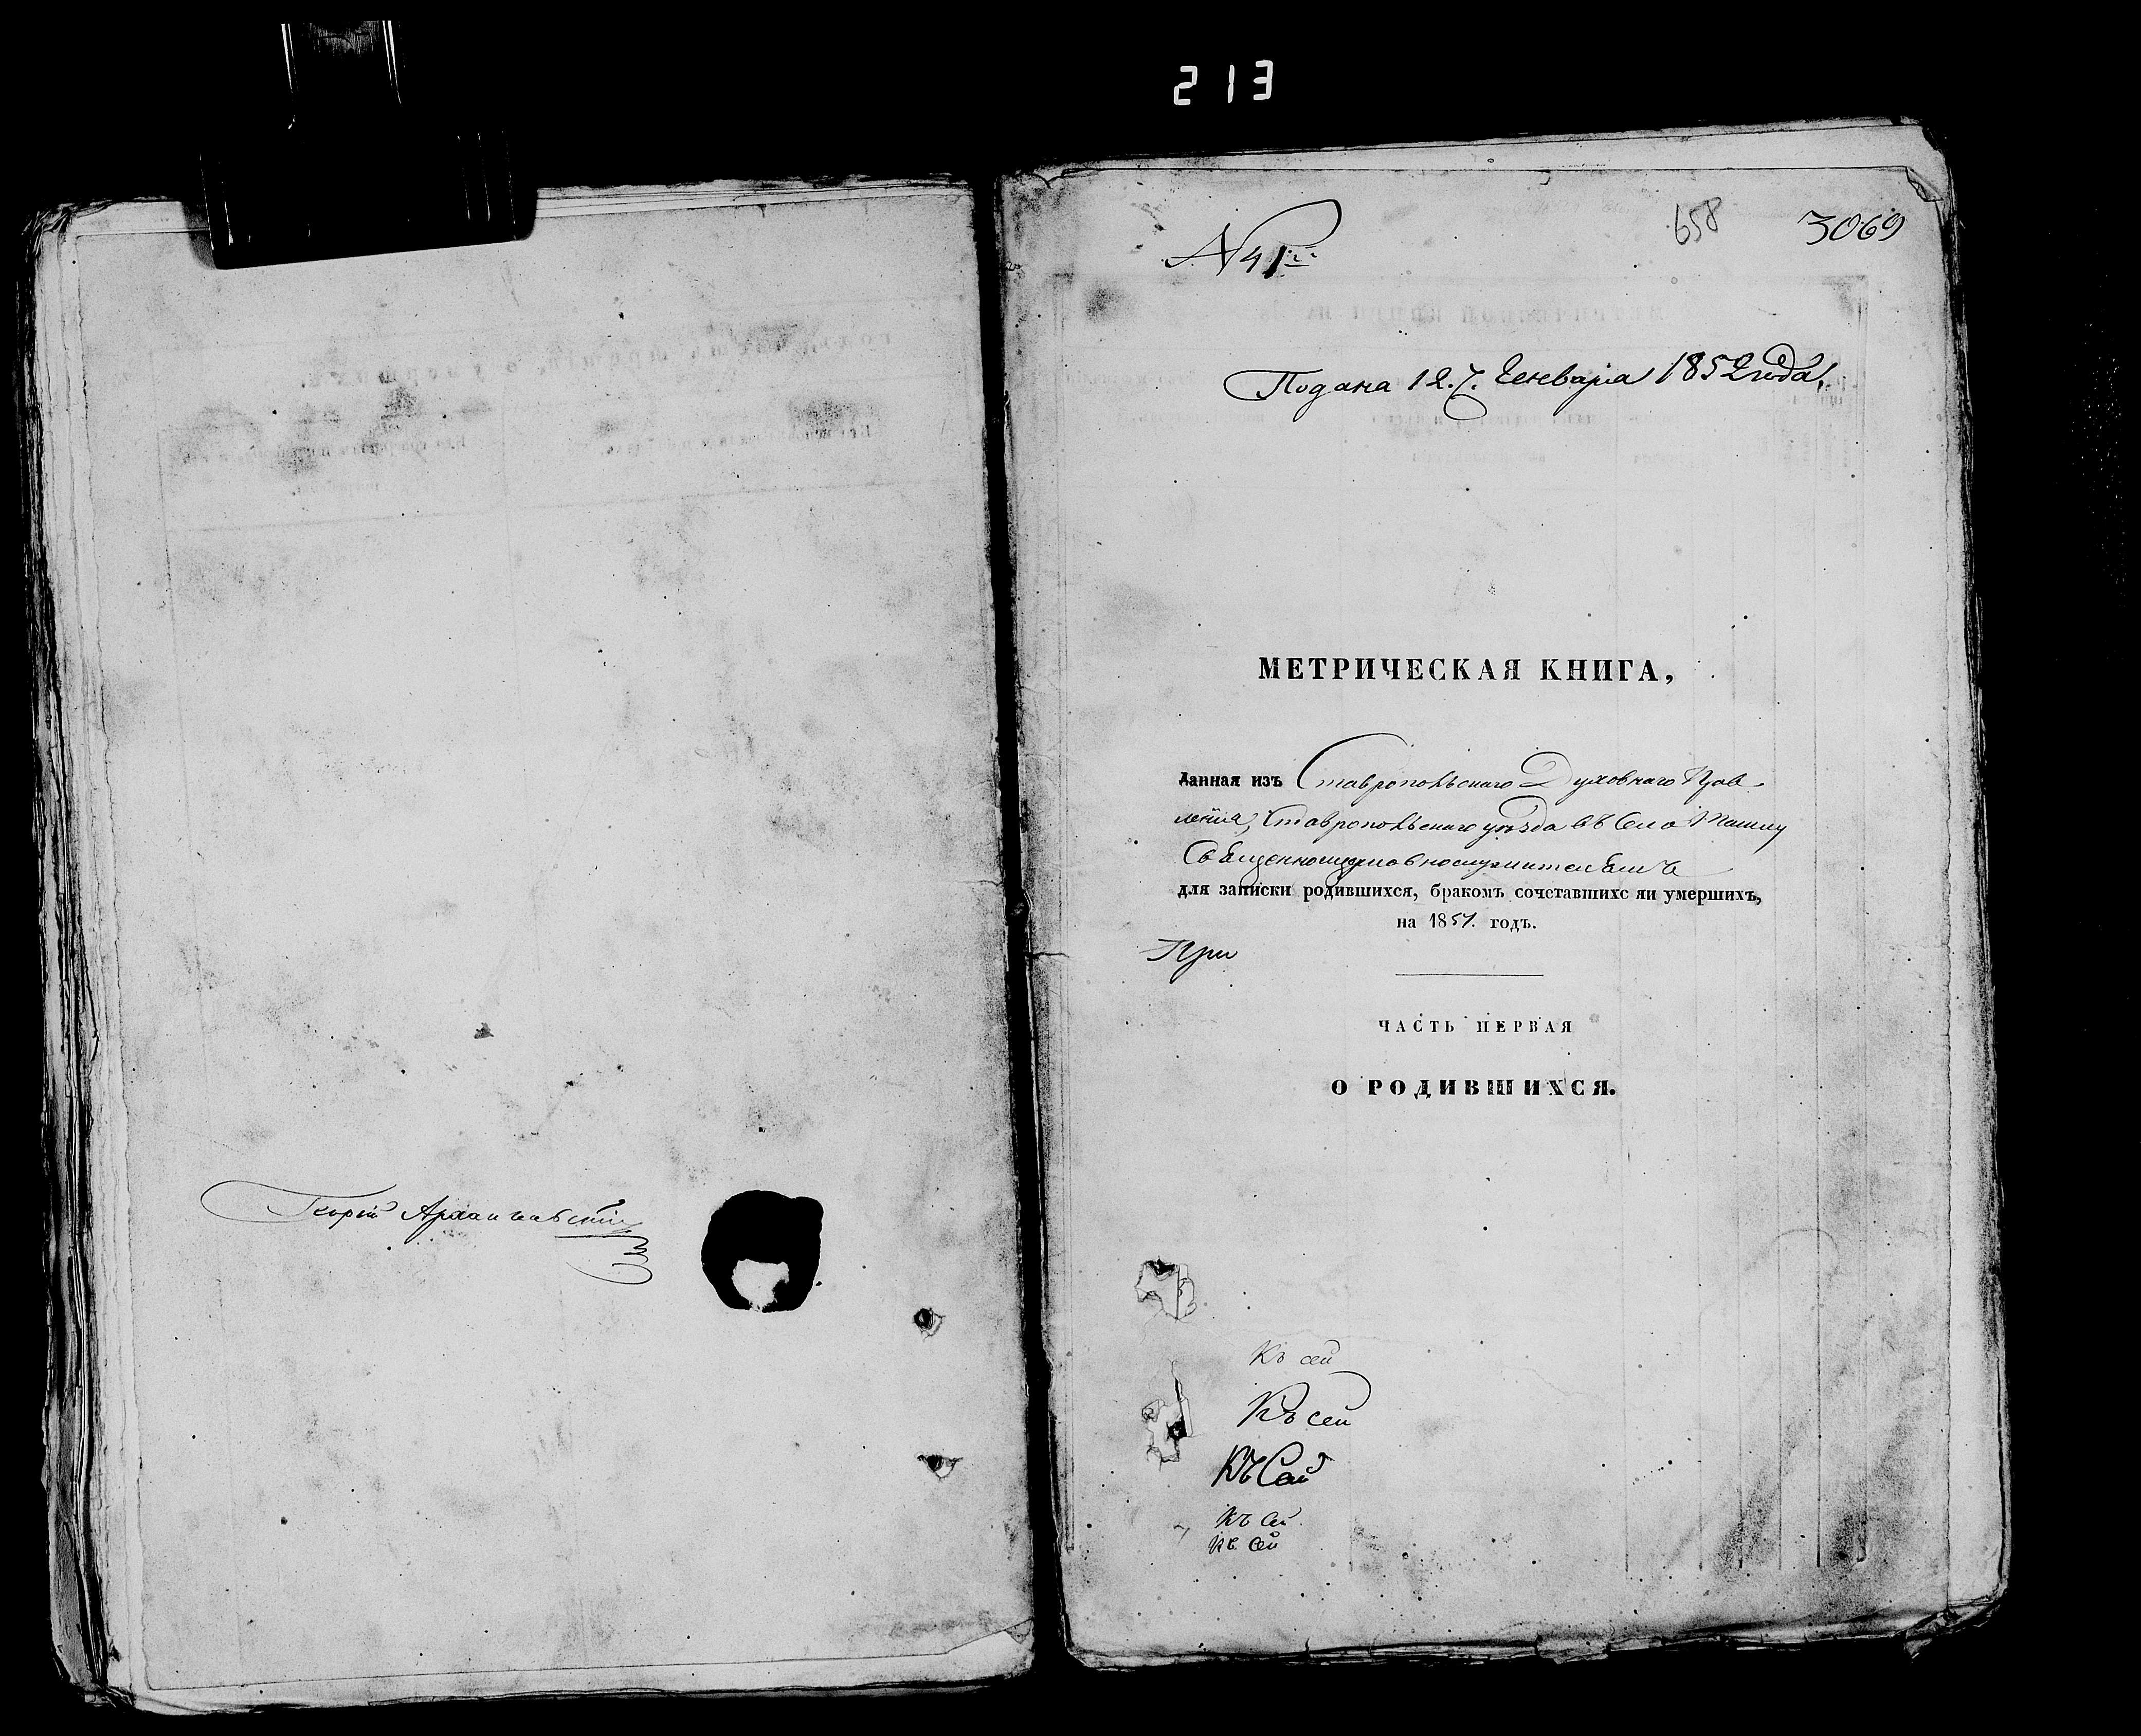 213
Георгій Архангельскій
№ 41й
658
3069
Подана 12. Генваря 1852 года.
МЕТРИЧЕСКАЯ КНИГА,
данная изъ Ставропольскаго Духовнаго Прав
ленія, Ставропольскаго уѣзда въ село
Священноцерковнослужителямъ
для записки родившихся, бракомъ сочставшихс яи умершихъ,
на 1851. годъ.
При
ЧАСТЬ ПЕРВАЯ
О РОДИВШИХСЯ.
Къ сей
Къ сей
Къ Сей
Къ сей
Къ сей